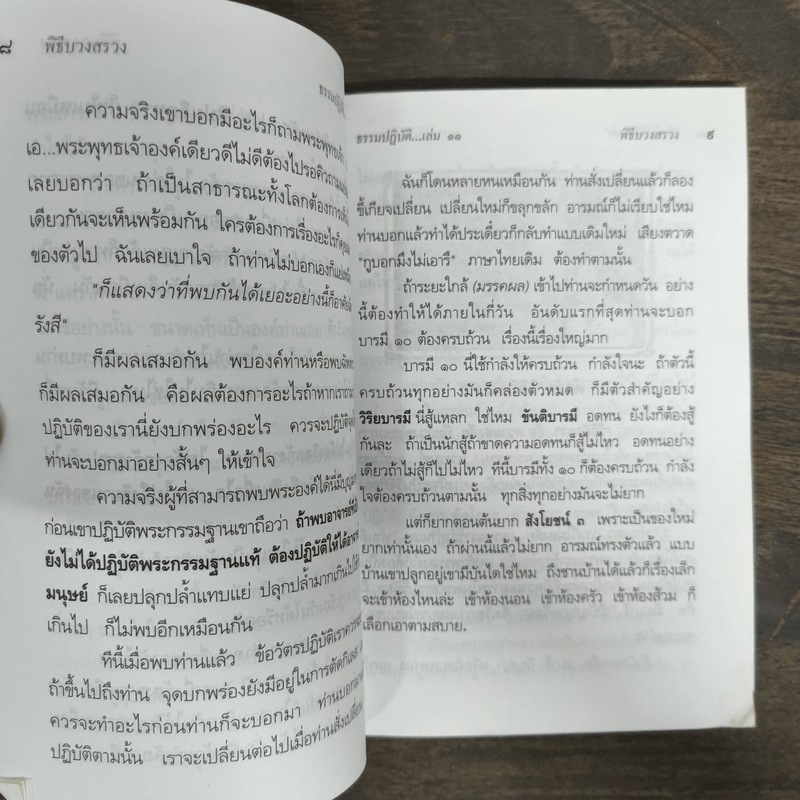 ๘ พิธีบวงสรวง
ธรรมปฏิบัติ
ความจริงเขาบอกมีอะไรก็ถามพระพุทธเจ้า
เอ...พระพุทธเจ้าองค์เดียวดีไม่ดีต้องไปรอคิวถาม
เลยบอกว่า ถ้าเป็นสาธารณะทั้งโลกต้องการ
เดียวกันจะเห็นพร้อมกัน ใครต้องการเรื่องอะไรก็
ของตัวไป ฉันเลยเบาใจ ถ้าท่านไม่บอกเองก็แย่
"ก็แสดงว่าที่พบกันได้เยอะอย่างนี้ก็อาศัย
รังสี"
ก็มีผลเสมอกัน พบองค์ท่านหรือพบ
ก็มีผลเสมอกัน คือผลต้องการอะไรถ้าหากเรา
ปฏิบัติของเรานี่ยังบกพร่องอะไร ควรจะปฏิบัติ
ท่านจะบอกมาอย่างสั้นๆ ให้เข้าใจ
ความจริงผู้ที่สามารถพบพระองค์ได้นี่มี
ก่อนเขาปฏิบัติพระกรรมฐานเขาถือว่า ถ้าพบอาจารย์
ยังไม่ได้ปฏิบัติพระกรรมฐานแท้ ต้องปฏิบัติให้ได้
มนุษย์ ก็เลยปลุกปล้ำแทบแย่ ปลุกปล้ำมากเกินไป
เกินไป ก็ไม่พบอีกเหมือนกัน
ทีนี้เมื่อพบท่านแล้ว ข้อวัตรปฏิบัติเรา
ถ้าขึ้นไปถึงท่าน จุดบกพร่องยังมีอยู่ในการตัดกิเลส
ควรจะทำอะไรก่อนท่านก็จะบอกมา ท่านบอก
ปฏิบัติตามนั้น เราจะเปลี่ยนต่อไปเมื่อท่านสั่งเปลี่ยน
ธรรมปฏิบัติ...เล่ม ๑๑ พิธีบวงสรวง ๙
ฉันก็โดนหลายหนเหมือนกัน ท่านสั่งเปลี่ยนแล้วก็ลอง
ขี้เกียจเปลี่ยน เปลี่ยนใหม่ก็ขลุกขลัก อารมณ์ก็ไม่เรียบใช่ไหม
ท่านบอกแล้วทำได้ประเดี๋ยวก็กลับทำแบบเดิมใหม่ เสียงตวาด
"กูบอกมึงไม่เอารึ" ภาษาไทยเดิม ต้องทำตามนั้น
ถ้าระยะใกล้ (มรรคผล) เข้าไปท่านจะกำหนดวัน อย่าง
นี้ต้องทำให้ได้ภายในกี่วัน อันดับแรกที่สุดท่านจะบอก
บารมี ๑๐ ต้องครบถ้วน เรื่องนี้เรื่องใหญ่มาก
บารมี ๑๐ นี่ใช้กำลังให้ครบถ้วน กำลังใจนะ ถ้าตัวนี้
ครบถ้วนทุกอย่างมันก็คล่องตัวหมด ก็มีตัวสำคัญอย่าง
วิริยบารมี นี่สู้แหลก ใช่ไหม ขันติบารมี อดทน ยังไงก็ต้องสู้
กันละ ถ้าเป็นนักสู้ถ้าขาดความอดทนก็สู้ไม่ไหว อดทนอย่าง
เดียวถ้าไม่สู้ก็ไปไม่ไหว ทีนี้บารมีทั้ง ๑๐ ก็ต้องครบถ้วน กำลัง
ใจต้องครบถ้วนตามนั้น ทุกสิ่งทุกอย่างมันจะไม่ยาก
แต่ก็ยากตอนต้นยาก สังโยชน์ ๓ เพราะเป็นของใหม่
ยากเท่านั้นเอง ถ้าผ่านนี้แล้วไม่ยาก อารมณ์ทรงตัวแล้ว แบบ
บ้านเขาปลูกอยู่เขามีบันไดใช่ไหม ถึงชานบ้านได้แล้วก็เรื่องเล็ก
จะเข้าห้องไหนล่ะ เข้าห้องนอน เข้าห้องครัว เข้าห้องส้วม ก็
เลือกเอาตามสบาย.